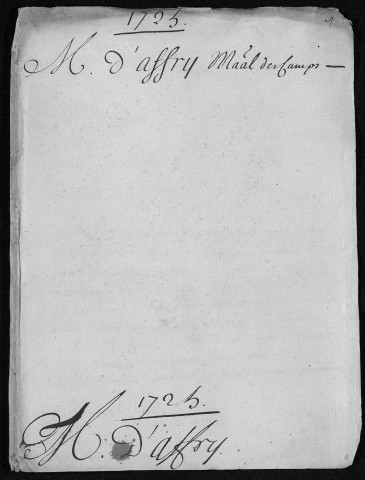 1725.
M. D'affry Maal des Camps —
1725.
M. D'affry.